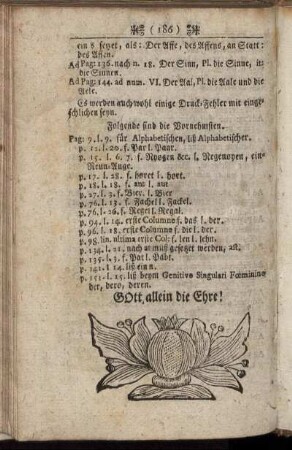 (186)
ein s seyet, als: Der Affe, des Affens, an Statt:
des Affen.
Ad Pag: 136. nach n. 18. Der Sinn, Pl. die Sinne, it:
die Sinnen.
Ad Pag: 144. ad num. VI. Der Aal, Pl. die Aale und die
Aele.
Es werden auch wohl einige Druck-Fehler mit einge-
schlichen seyn.
Folgende sind die Vornehmsten.
Pag: 9. l. 9. für Alphabetischen, liß Alphabetischer.
p. 12. l. 20. f. Par l. Paar.
p. 15. l. 6. 7. f. &c. l. Negenoyen, ein
Neun-Auge.
p. 17. l. 28. f. horet l. höret.
p. 18. l. 18. f. l.
p. 27. l. 3. f. Vier. l. Bier
p. 76. l. 13. f. Fachel l. Fackel.
p. 76. l. 26. f. Regel l. Regal.
p. 94. l. 14. erste Columne f. das l. der.
p. 96. l. 28. erste Columne f. die l. der.
p. 98. lin. ultima erste Col: f. len l. sehn.
p. 134. l. 21. nach muß gesetzet werden, 28.
p. 139. l. 3. f. Pot l. Pabt.
p. 141. l. 14. liß ein n.
p. 151. l. 15. liß beym Genitivo Singulari Fœminino
der, dero, deren.
GOtt allein die Ehre!